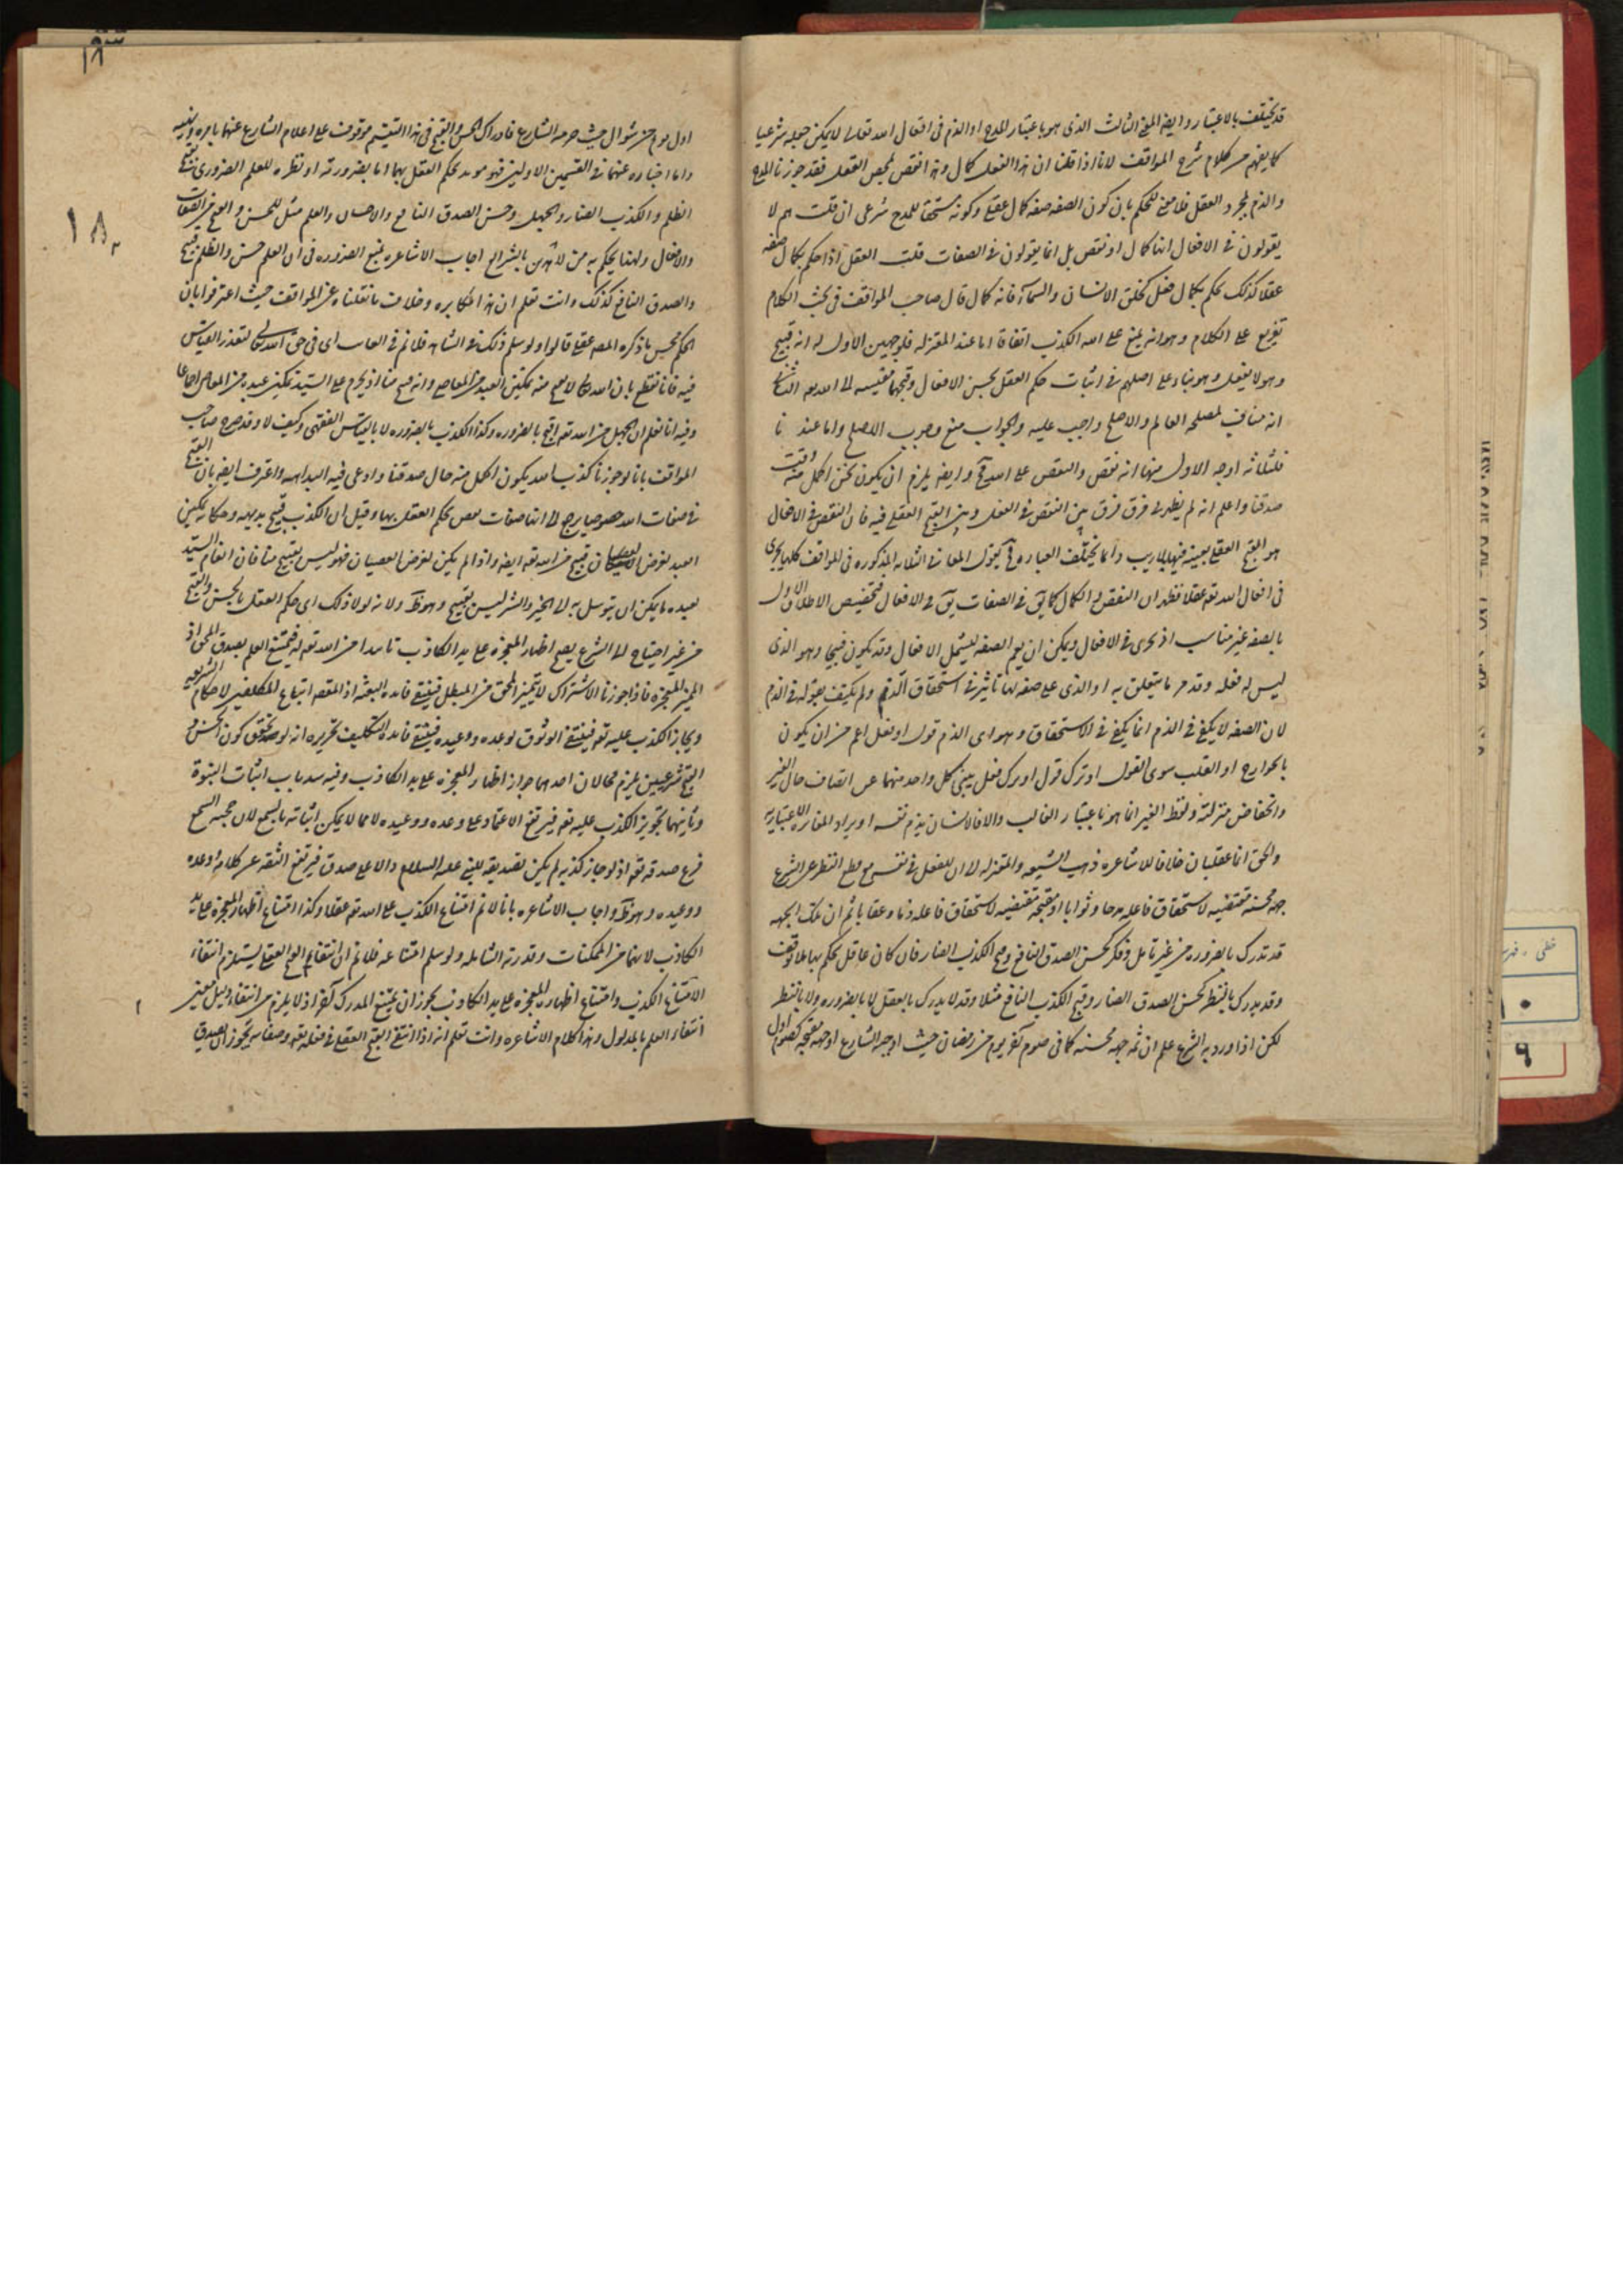 قد يختلف بالاعتبار وايضا المعنى الثالث الذى هو باعتبار المدح او الذم فى افعال الله تعالى لا يمكن جعله شرعيا
كما يفهم من كلام شرح المواقف لانا اذا قلنا ان هذا الفعل كمال وهذا نقص بمحض العقل فقد جوزنا المدح
والذم بمجرد العقل فلا معنى للحكم بان كون الصفه صفه كمال عقلى وكونه مستحقا للمدح شرعى ان قلت هم لا
يقولون فى الافعال انها كمال او نقص بل انما يقولون فى الصفات قلت العقل اذا حكم بكمال صفه
عقلا كذلك يحكم بكمال فعل كخلق الانسان والسماء فانه كمال قال صاحب المواقف فى بحث الكلام
تفريع على الكلام وهو انه يمتنع على الله الكذب اتفاقا اما عند المعتزله فلوجهين الاول انه قبيح
وهو لا يفعل وهو بناء على اصلهم فى اثبات حكم العقل بحسن الافعال وقبحها مقيسه الى الله تعه الثانى
انه مناف لمصلحه العالم والاصلح واجب عليه والجواب منع وجوب الاصلح واما عندنا
فلثلاثه اوجه الاول منها انه نقص والنقص على الله مح وايضه يلزم ان يكون نحن اكمل منه وقت
صدقنا واعلم انه لم يظهر لى فرق بين النقص فى الفعل وبين القبح العقلى فيه فان النقص فى الافعال
هو القبح العقلى بعينه فيها بلا ريب وانما يختلف العباره المعانى الثلثه المذكوره فى المواقف كلها يجرى
فى افعال الله تعه عقلا فظهر ان النقص والكمال كما يق فى الصفات يق فى الافعال فتخصيص الاطلاق الاول
بالصفه غير مناسب اذ يجرى فى الافعال ويمكن ان يعم الصفه ليشمل الافعال وقد يكون قبيحا وهو الذى
ليس له فعله وقد مر ما يتعلق به او الذى على صفه لها تاثير فى استحقاق الذم ولم يكتف بقوله فى الذم
لان الصفه لا يكفى فى الذم انما يكفى فى الاستحقاق وهو اى الذم قول او فعل اعم من ان يكون
بالجوارح او القلب سوى القول او ترك قول او ترك فعل يبنى كل واحد منهما عن اتضاع حال الغير
وانخفاض منزلته ولفظ الغير انما هو باعتبار الغالب والا فالانسان يذم نفسه او يراد المغايره الاعتباريه
والحق انهما عقليان خلافا للاشاعره ذهب الشيعه والمعتزله الى ان للفعل فى نفسه مع قطع النظر عن الشرع
جهه محسنه مقتضيه لاستحقاق فاعله مدحا وثوابا او مقبحه مقتضيه لاستحقاق فاعله ذما وعقابا ثم ان تلك الجهه
قد تدرك بالضروره من غير تامل وفكر كحسن الصدق النافع وقبح الكذب الضار فان كل عاقل يحكم بها بلا توقف
وقد يدرك بالنظر كحسن الصدق الضار وقبح الكذب النافع مثلا وقد لا يدرك بالعقل لا بالضروره ولا بالنظر
لكن اذا ورد به الشرع علم ان ثمه جهه محسنه كما فى صوم آخر يوم من رمضان حيث اوجبه الشارع او جهه مقبحه كصوم اول
اول يوم من شوال حيث حرمه الشارع فادراك الحسن والقبح فى هذا القسم موقوف على اعلام الشارع عنهما بامره ونهيه
واما اخباره عنهما فى القسمين الاولين فهو مويد لحكم العقل بهما اما بضرورته او نظره للعلم الضرورى بقبح
الظلم والكذب الضار والجهل وحسن الصدق النافع والاحسان والعلم مثل للحسن والقبح من الصفات
والافعال ولهذا يحكم به من لا يتدين بالشرائع اجاب الاشاعره بمنع الضروره فى ان العلم حسن والظلم قبيح
والصدق النافع كذلك وانت تعلم ان هذا مكابره وخلاف ما نقلناه عن المواقف حيث اعترفوا بان
الحكم بحسن ما ذكره المص عقلى قالوا ولو سلم ذلك فى الشاهد فلا نم فى الغائب اى فى حق الله تعالى لتعذر القياس
فيه فانا نقطع بان الله تعالى لا يقبح منه تمكين العبد من المعاصى وانه قبيح منا اذ يحرم على السيد تمكين عبده من المعاصى اجماعا
وفيه انا نعلم ان الجهل من الله تعه اقبح بالضروره وكذا الكذب بالضروره لا بالقياس الفقهى وكيف لا وقد صرح صاحب
المواقف بانا لو جوزنا كذب الله يكون اكمل منه حال صدقنا وادعى فيه البداهه واعترف ايضه بان القبح
فى صفات الله خصوصا يرجع الى انها صفات نقص يحكم العقل بها وقيل ان الكذب قبيح بديهه وحكايه تمكين
العبد لغرض العصيان قبيح من الله تعه ايضه واذا لم يكن لغرض العصيان فهو ليس بقبيح منا فان انعام السيد
بعبده ما يمكن ان يتوسل به الى الخير والشر ليس بقبيح وهو ظ ولانه لولا ذلك اى حكم العقل بالحسن والقبح
من غير احتياج الى الشرع يصح اظهار المعجزه على يد الكاذب تاييدا من الله تعه له فيمتنع العلم بصدق المحق اذ
المميز المعجزه فاذا جوزنا الاشتراك لا يتميز المحق من المبطل فينتفى فائده البعثه اذ المقصد اتباع المكلفين لاحكام الشريعه
ويجاز الكذب عليه تعه فينتفى الوثوق بوعده ووعيده فينتفى فائده التكليف تحريره انه لو تحقق كون الحسن و
القبح شرعيين يلزم محالان احدهما جواز اظهار المعجزه على يد الكاذب وفيه سد باب اثبات النبوة
وثانيهما تجويز الكذب عليه تعه فيرتفع الاعتماد على وعده ووعيده لا مما لا يمكن اثباته بالسمع لان حجيه السمع
فرع صدقه تعه اذ لو جاز كذبه لم يكن تصديقه للنبى عليه السلام دالا على صدقه فيرتفع الثقه عن كلامه ووعده
ووعيده وهو ظ واجاب الاشاعره بانا لا نم امتناع الكذب على الله تعه عقلا وكذا امتناع اظهار المعجزه على يد
الكاذب لانهما من الممكنات وقدرته الشامله ولو سلم امتناعه فلا نم ان انتفاء القبح العقلى يستلزم انتفاء
امتناع الكذب وامتناع اظهار المعجزه على يد الكاذب لجواز ان يمتنع المدرك آخر اذ لا يلزم من انتفاء دليل معين
انتفاء العلم بالمدلول وهذا كلام الاشاعره وانت تعلم انه اذا انتفى القبح العقلى فى فعله تعه وصفاته يجوز ان يصدق